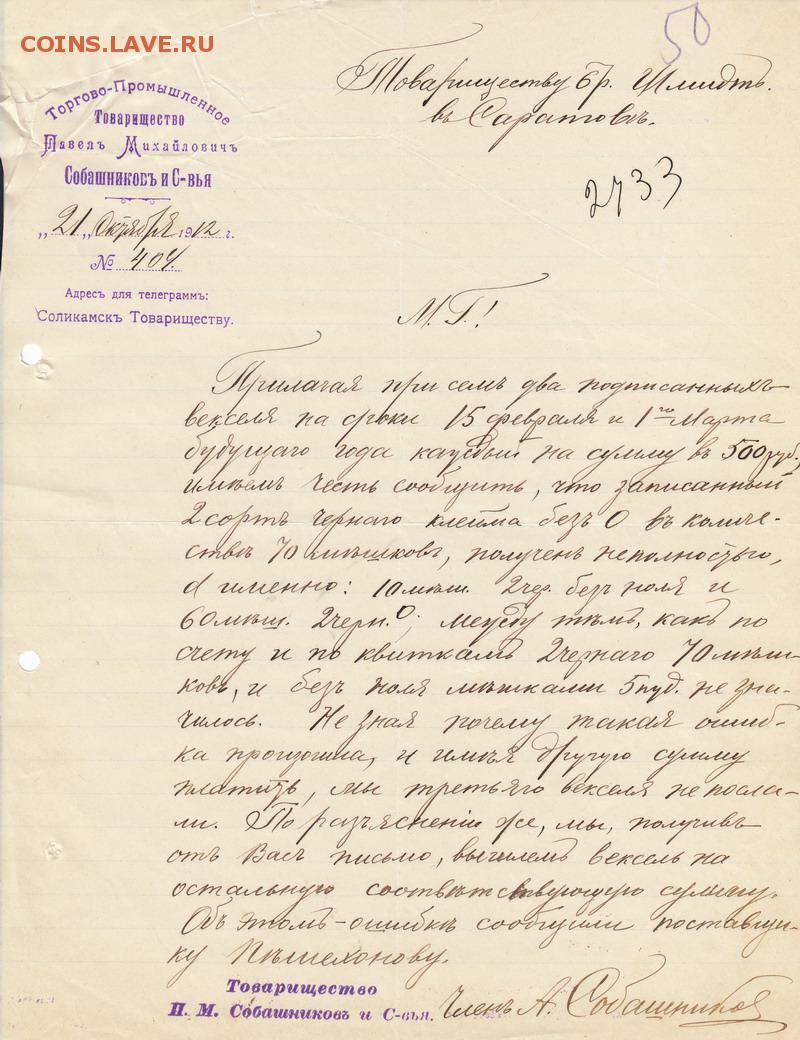 COINS.LAVE.RU
50
Торгово-Промышленное
Товарищество
Павелъ Михайловичъ
Собашниковъ и С-вья
„21„ Октября 1912 г.
№ 404.
Адресъ для телеграммъ:
Соликамскъ Товариществу.
Товариществу Бр. Шмидтъ.
въ Саратовѣ.
2733
М.Г.!
Прилагая при семъ два подписанныхъ
векселя на сроки 15 февраля и 1го Марта
будущаго года каждый на сумму въ 500 руб,
имѣемъ честь сообщить, что записанный
2 сортъ чернаго клейма безъ 0 въ количе-
ствѣ 70 мѣшковъ, полученъ неполностью,
а именно: 10 мѣш. 2 чер. безъ ноля и
60 мѣш. 2 черн. 0; между тѣмъ, какъ по
счету и по квиткамъ 2 чернаго 70 мѣш-
ковъ, и безъ ноля мѣшками 5 пуд. не зна-
чилось. Не зная почему такая ошиб-
ка произошла, и имѣя другую сумму
платить, мы третьяго векселя не посла-
ли. По разъясненіи же, мы, получивъ
отъ Васъ письмо, вышлемъ вексель на
остальную соотвѣтствующую сумму.
Объ этомъ-ошибкѣ сообщили поставщи-
ку Пѣшехонову.
Товарищество
П. М. Собашниковъ и С-вья.
Членъ А. Собашниковъ